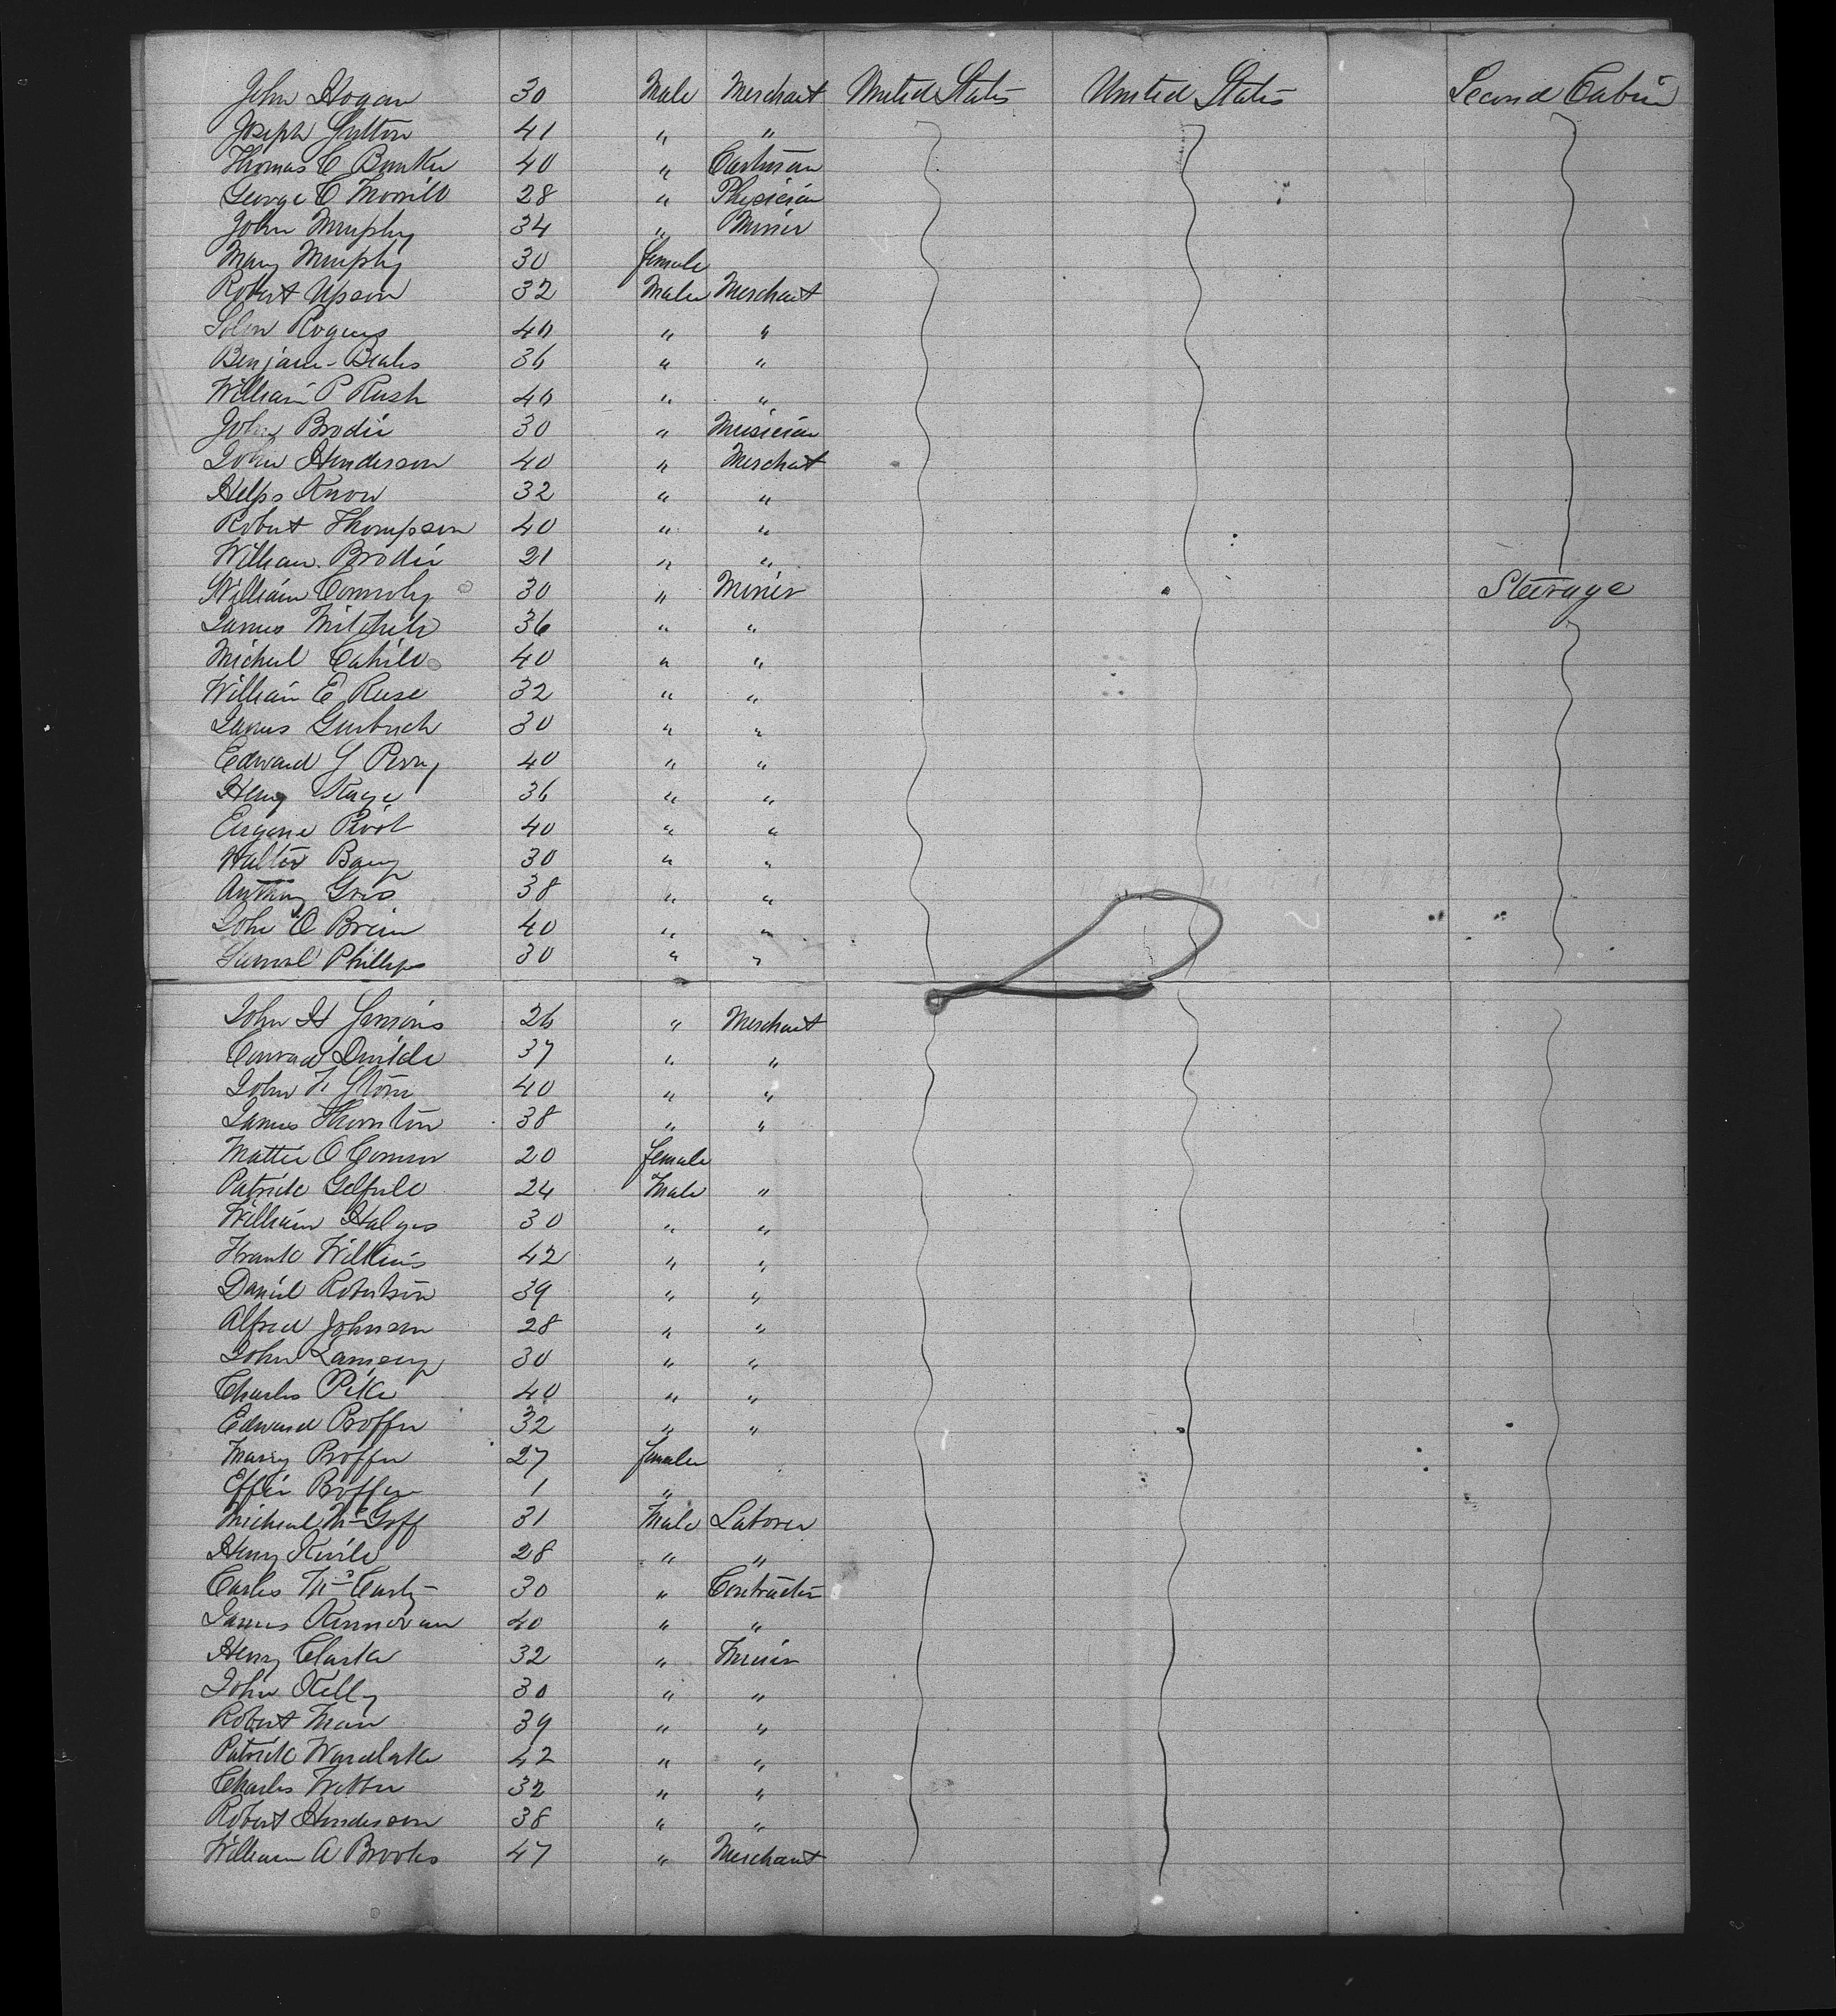 John Hogan 30 Male Merchant United States United States Second Cabin
Joseph Sutton 41 " "
Thomas C Bunker 40 "
George C Morrill 28 " Physician
John Murphy 34 " Miner
Mary Murphy 30 female
Robert Upson 32 Male Merchant
Rogers 40 " "
Benjam- Beales 36 " "
William P Rush 40 " "
John Brodie 30 " Musician
John Henderson 40 " Merchant
Helps Know 32 " "
Robert Thompson 40 " "
William Brodie 21 " "
William Connoly 30 " Miner Steerage
James Mitchell 36 " "
Micheal Cahill 40 " "
William E Reese 32 " "
James 30 " "
Edward Y Perry 40 " "
Henry Kaye 36 " "
Eugene Pivot 40 " "
Walter Bany 30 " "
Anthony 38 " "
John O Brien 40 " "
Samuel Phillips 30 " "
John H 26 " Merchant
Conrad 37 " "
John F Storn 40 " "
James Thornton 38 " "
Mattie O Connor 20 female
Patrick 24 Male "
William Halyes 30 " "
Frank Wilkins 42 " "
Daniel Robertson 39 " "
Alfred Johnson 28 " "
John Lamsey 30 " "
Charles Pike 40 " "
Edward Boffer 32 " "
Marry Boffer 27 female
Effie Boffer 1 "
Micheal McGoff 31 Male Laborer
Henry 28 " "
Carles McCarty 30 " Contractor
James Kinnovan 40 " "
Henry Clarke 32 " Miner
John Kelly 30 " "
Robert 39 " "
Patrick Wardlake 42 " "
Charles 32 " "
Robert Henderson 38 " "
William A Brooks 47 " Merchant